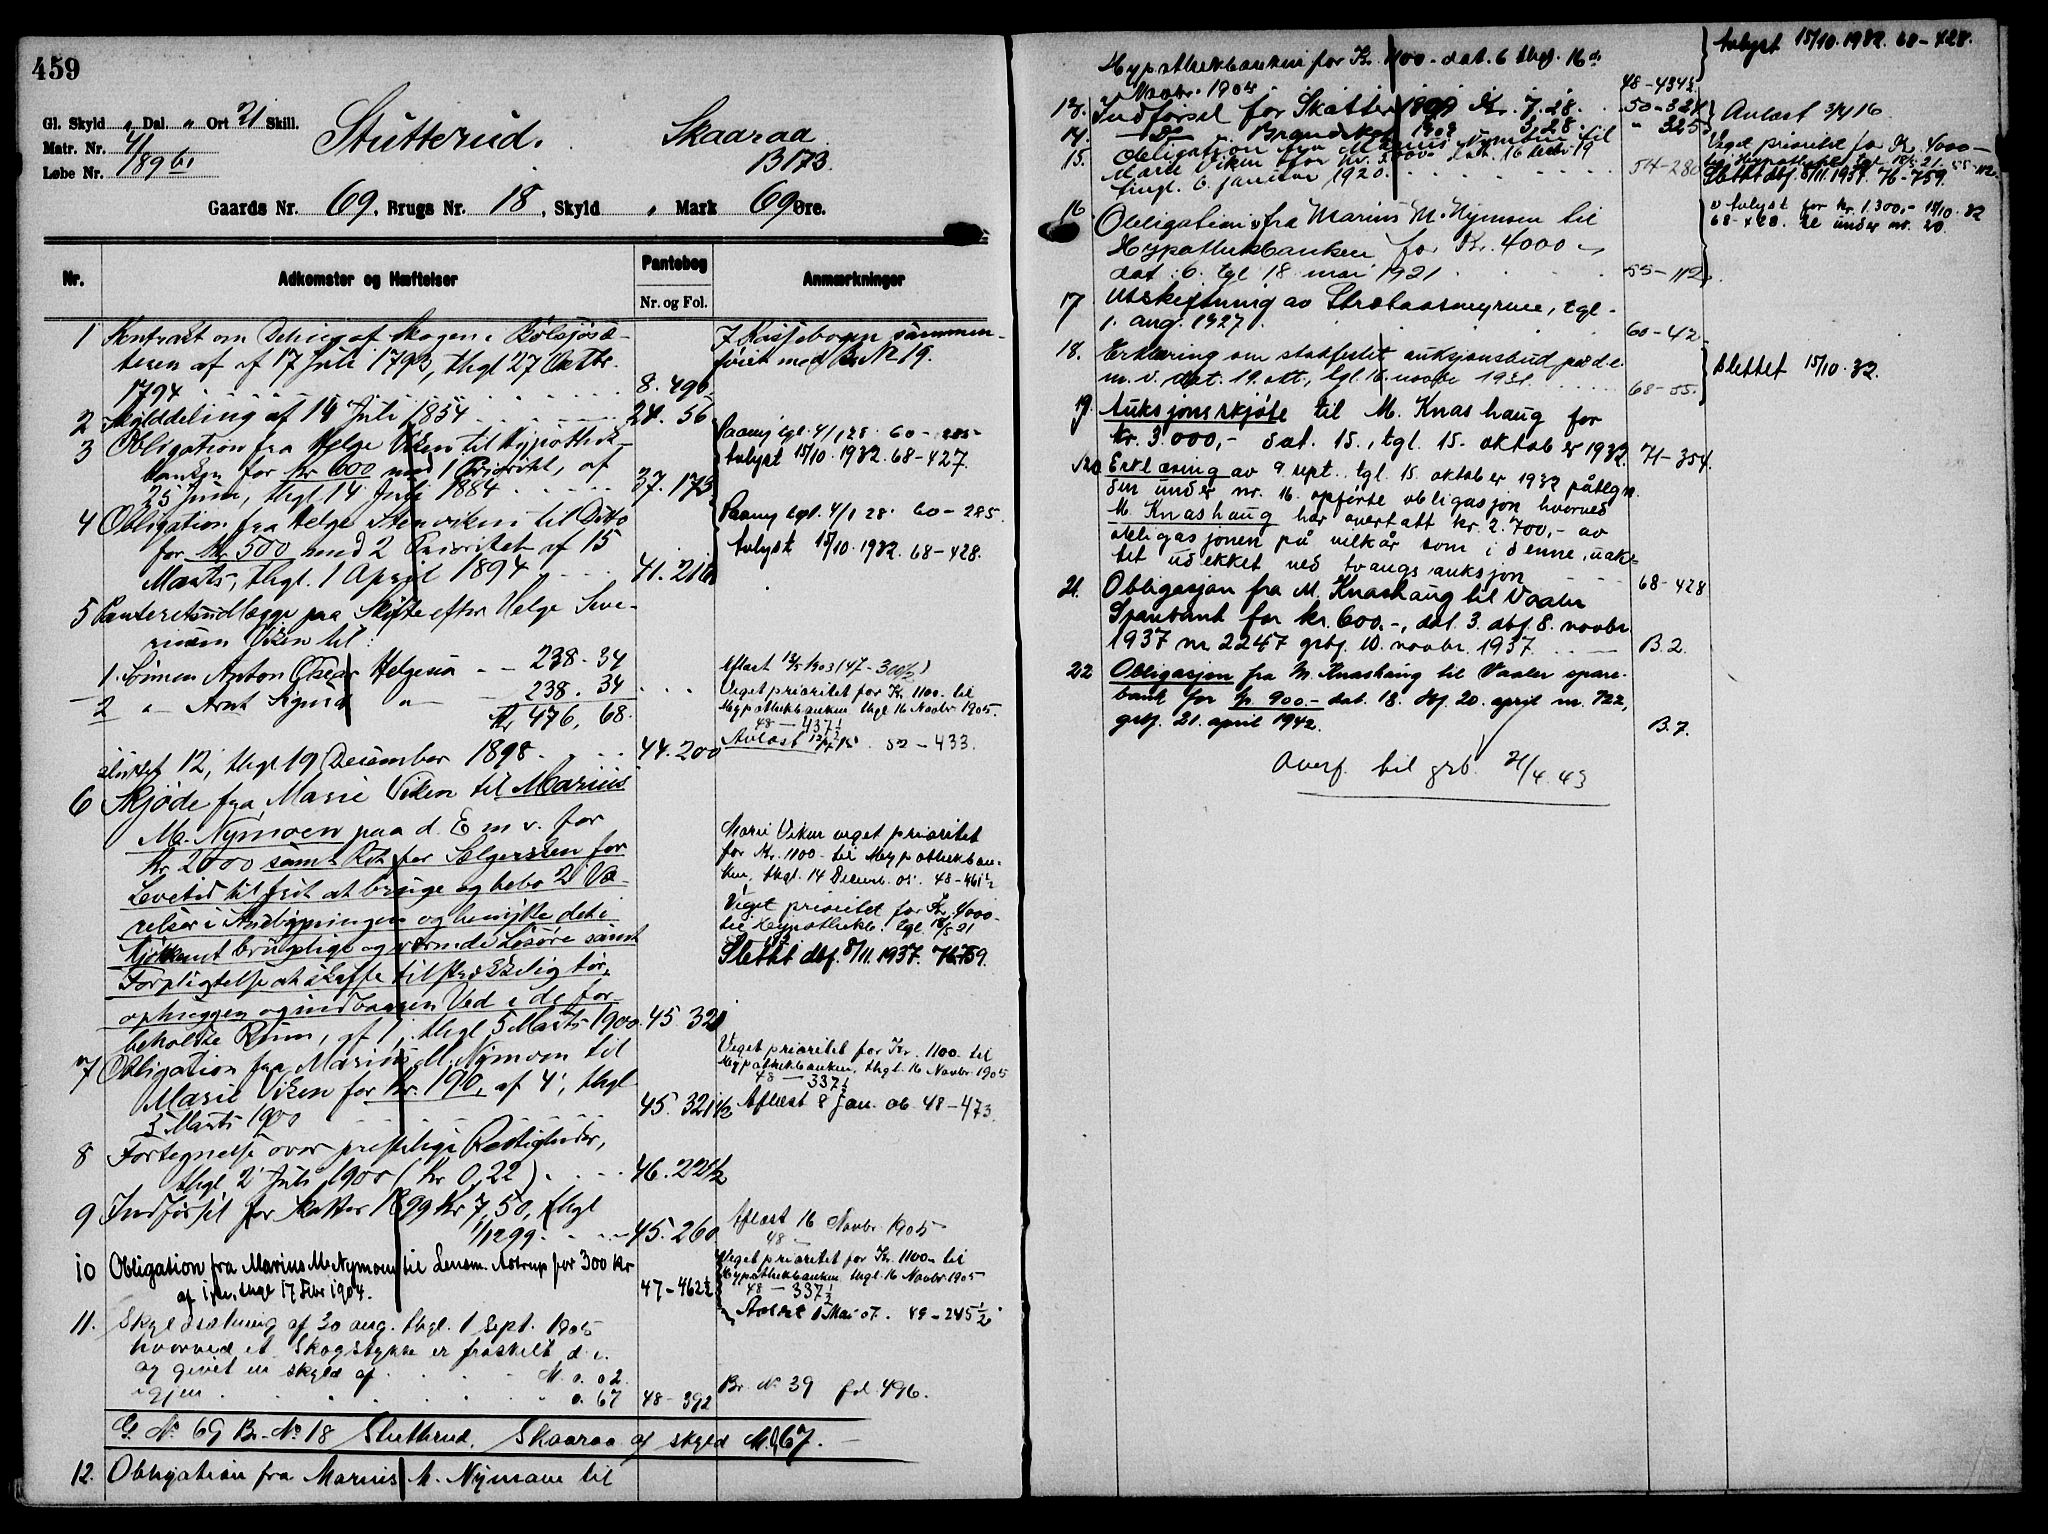 459
Gl. Skyld " Dal. " Ort 21 Skill.
Matr. Nr. 41
Løbe Nr. 189 b1
Stutterud. Skaaraa
B 173.
Gaards Nr. 69. Brugs Nr. 18, Skyld , Mark 69 Øre.
Nr. Adkomster og Hæftelser Pantebog Nr. og Fol. Anmærkninger
1 Kontrakt om Deling af Skogen i Bølsjøsæ-
teren af 17 Juli 1793, thgl 27 Oktbr.
1794 8. 496
I Kassebogen sammen-
føiet med Br N 19.
2 Skylddeling af 14 Juli 1854 24. 56
3 Obligation fra Helge Viken til Hypothek-
banken for Kr 600 med 1 Prioritet, af
25 Juni, thgl. 14 Juli 1884 37. 173
Paany tgl. 4/1 28. 60-285
Avlyst 15/10. 1932. 68-427.
4 Obligation fra Helge Stenviken til Ditto
for Kr. 500 med 2 Prioritet af 15
Marts, thgl. 1 April 1894 41. 216
Paany tgl. 4/1 28. 60-285.
Avlyst 15/10. 1932. 68-428.
5 Panteretsudlægge paa Skifte efter Helge Seve-
rinsen Viken til:
1. Simen Anton Oskar Helgesen - 238. 34
2 " Arnt Sigurd " - 238. 34
Kr 476, 68.
sluttet 12, thgl 19 December 1898. 44. 200
Aflæst 12/5 1903 (47-300½)
Veget prioritet for Kr. 1100- til
Hypothekbanken thgl 16 Novbr 1905.
48-437½
Avlæst 52-433.
6 Skjøde fra Marie Viken til Marius
M. Nymoen paa d. E m. v. for
Kr 2000 samt Ret for Sælgersken for
Levetid til frit at bruge og bebo 2 Væ-
relser i Hovedbygningen og benytte det i
Kjøkkenet brugelige og værende Løsøre samt
Forpligtelse at skaffe tilstrækkelig tør,
ophuggen og indbaaren Ved i de for-
beholdte Rum, af 1, thgl 5 Marts 1900. 45. 321
Marie Viken veget prioritet
for Kr. 1100- til Hypothekban-
ken, thgl. 14 Decemb. 05. 48-461½
Veget prioritet for Kr. 4000-
til Hypothekb. tgl. 18/5 21
Slettet dbf. 8/11. 1937. 76-759.
7 Obligation fra Marius M. Nymoen til
Marie Viken for Kr. 190, af 4, thgl
5 Marts 1900 45. 321½
Veget prioritet for Kr. 1100- til
Hypothekbanken, thgl. 16 Novbr. 1905
48-337½
Aflæst 8 Jan. 06. 48-473.
8 Fortegnelse over prestelige Rettigheder,
thgl 2 Juli 1900 (Kr 0,22) 46. 221½
9 Indførsel for Skatter 1899 Kr 7,50, thgl
1/12 99. 45. 260
Aflæst 16 Novbr. 1905
48-
10 Obligation fra Marius M Nymoen til Lensm. Astrup for 300 Kr
af 1, thgl 17 Febr 1904. 47-462½
Veget prioritet for Kr. 1100- til
Hypothekbanken thgl. 16 Novbr 1905
48-337½
Avlæst 1 Mai 07. 49-245½
11. Skyldsætning af 30 aug. thgl. 1 Sept. 1905
hvorved et Skogstykke er fraskilt d. e.
og givet en skyld af M. 0. 02.
igjen 0. 67 48-392
Br. N 39 fol. 496.
G. No 69 Br. No 18 Stutterud, Skaaraa af skyld M. 0,67.
12. Obligation fra Marius M. Nymoen til
Hypothekbanken for Kr. 1100- dat. 6 thgl. 16de
Novbr. 1905 48-434½
Avlyst 15/10. 1932. 68-428.
13. Indførsel for Skatter 1909 Kr. 7.28. 50-324
14. Do - Brandskat 1909 3.28 " 325
Avlæst 3/4 16
15. Obligation fra Marius Nymoen til
Marie Viken for kr. dat. 16 decbr 19
tingl. 6. januar 1920. 54-280
Veget prioritet for Kr. 4000-
til Hypothekb. tgl. 18/5 21. 55-112.
Slettet dbf. 8/11. 1937. 76-759.
16 Obligation fra Marius M. Nymoen til
Hypothekbanken for Kr. 4000-
dat. 6. tgl 18. mai 1921 55-112
Avlyst for kr. 1.300,- 15/10. 32
68-428. Se under nr. 20.
17 Utskiftning av Strætaasmyrene, tgl.
1. aug. 1927. 60-42
18. Erklæring om stadfestet auksjonsbud paa d. e.
m. v. dat. 19. okt., tgl. 16. novbr 1931. 68-55.
Slettet 15/10. 32.
19. Auksjonsskjøte til M. Knashaug for
kr. 3.000,- dat. 15., tgl. 15. oktober 1932. 71-354.
20. Erklæring av 9 sept. tgl. 15. oktober 1932 påtegn.
den under nr. 16. opførte obligasjon hvorved
M. Knashaug har overtatt kr. 2.700,- av
obligasjonen på vilkår som i denne, uak-
tet udekket ved tvangsauksjon 68-428
21. Obligasjon fra M. Knashaug til Vaaler
Sparebank for kr. 600.-, dat. 3. dbf. 8. novbr.
1937 nr 2247 grbf. 10. novbr. 1937. B. 2.
22 Obligasjon fra M. Knashaug til Vaaler spare-
bank for kr. 900.- dat. 18. dbf. 20. april nr. 722,
grbf. 21. april 1942. B. 7.
Overf. til grb. 21/4. 43